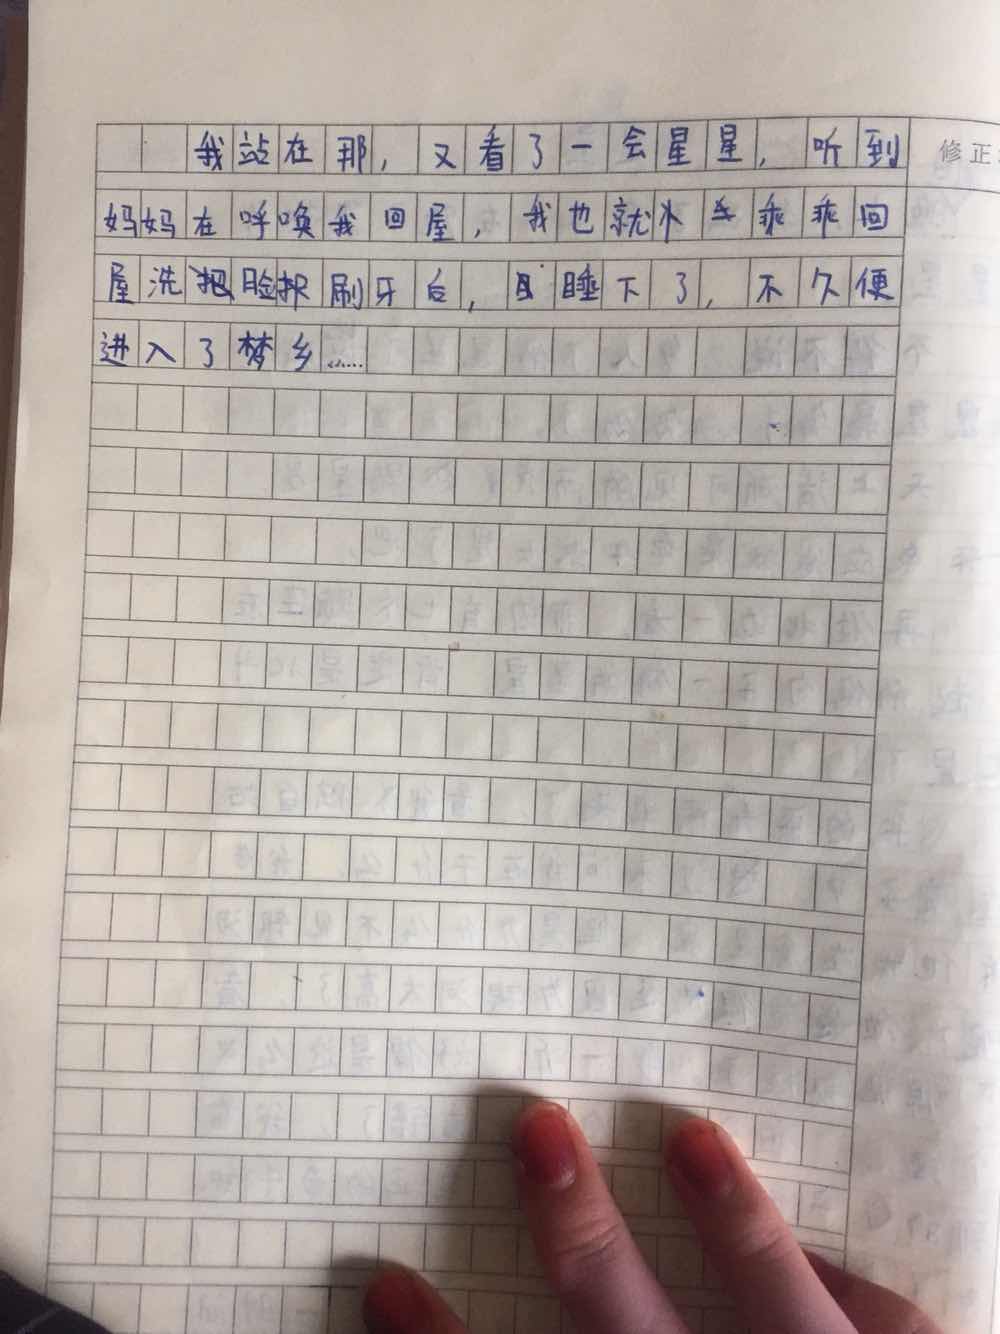 我站在那，又看了一会星星，听到
修正
妈妈在呼唤我回屋，我也就乖乖回
屋洗把脸刷牙后，睡下了，不久便
进入了梦乡……